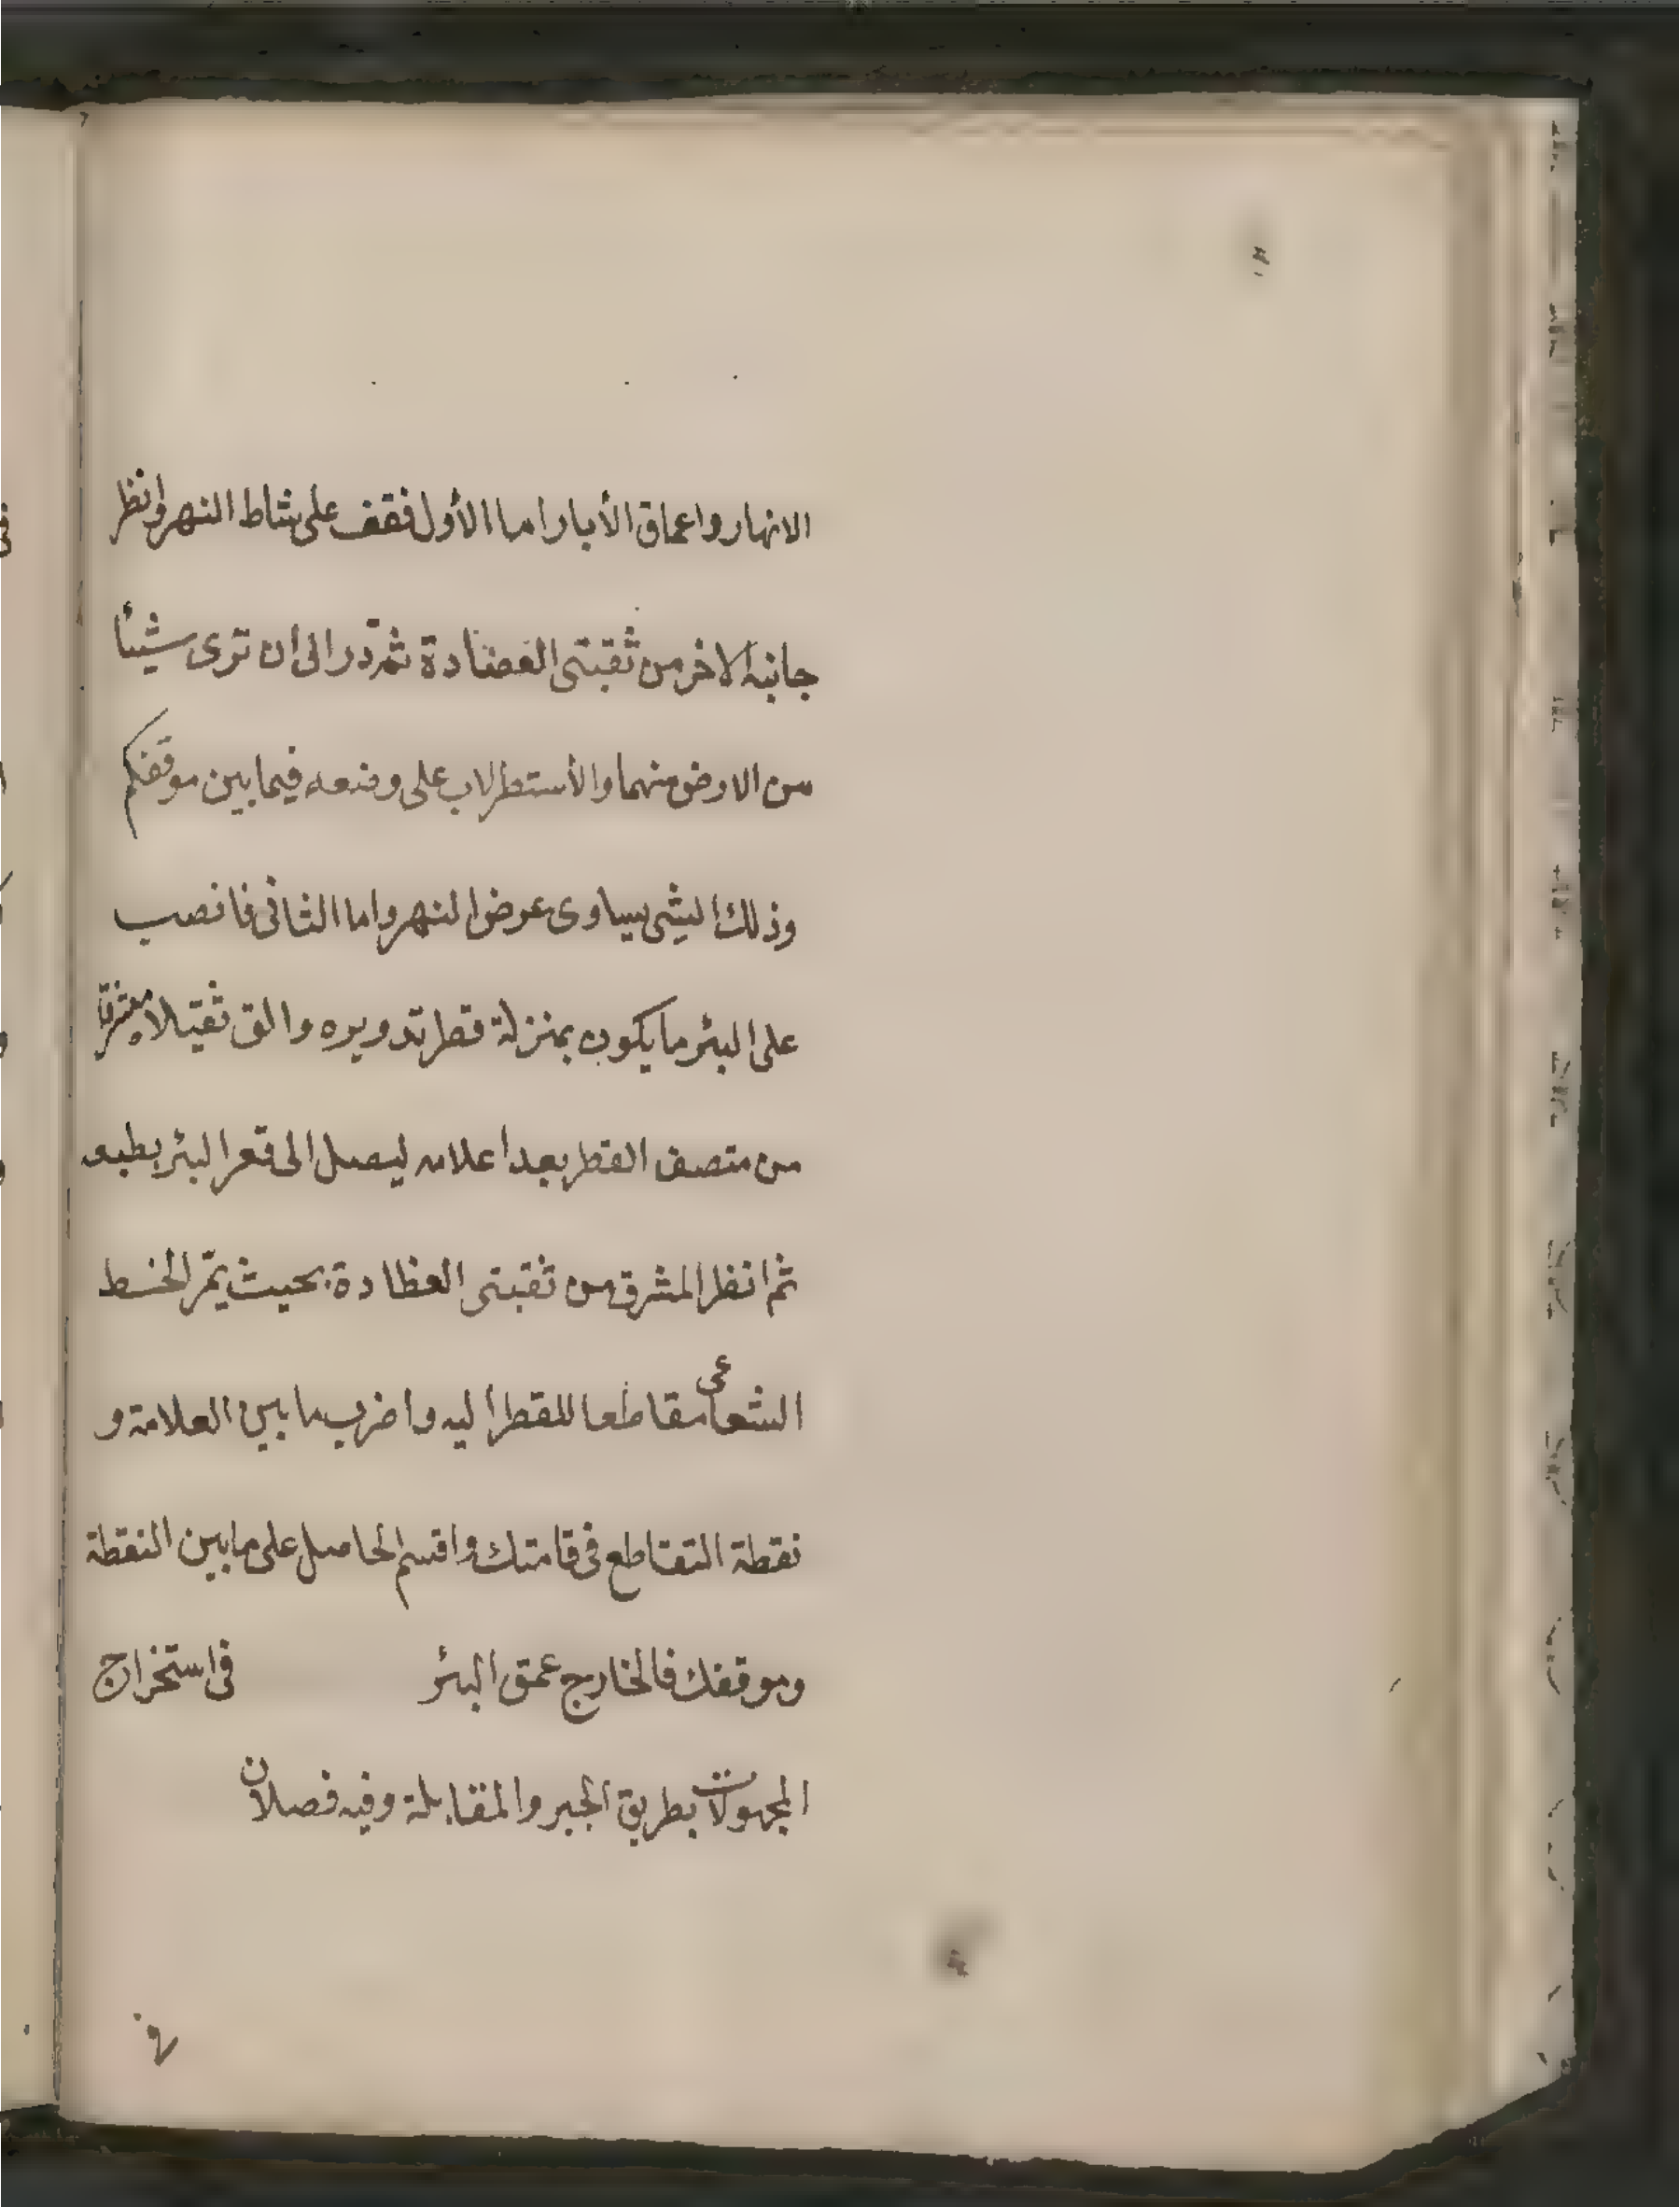 الانهار واعماق الأبار اما الأول فقف على شاط النهر وانظر
جانبه الاخر من ثقبتى العضادة ثم در الى ان ترى شيئا
من الارض منهما والأسطرلاب على وضعه فيما بين موقفك
وذلك الشئ يساوى عرض النهر واما الثانى فانصب
على البئر ما يكون بمنزلة قطر تدويره والق ثقيلا مشرقا
من منتصف القطر بعد اعلامه ليصل الى قعر البئر بطبعه
ثم انظر المشرق من ثقبتى العظادة بحيث يمّر الخط
الشعاعى مقاطعا للقطر اليه واضرب ما بين العلامة و
نقطة التقاطع فى قامتك واقسم الحاصل على ما بين النقطة
وموقفك فالخارج عمق البئر فى استخراج
المجهولات بطريق الجبر والمقابلة وفيه فصلان